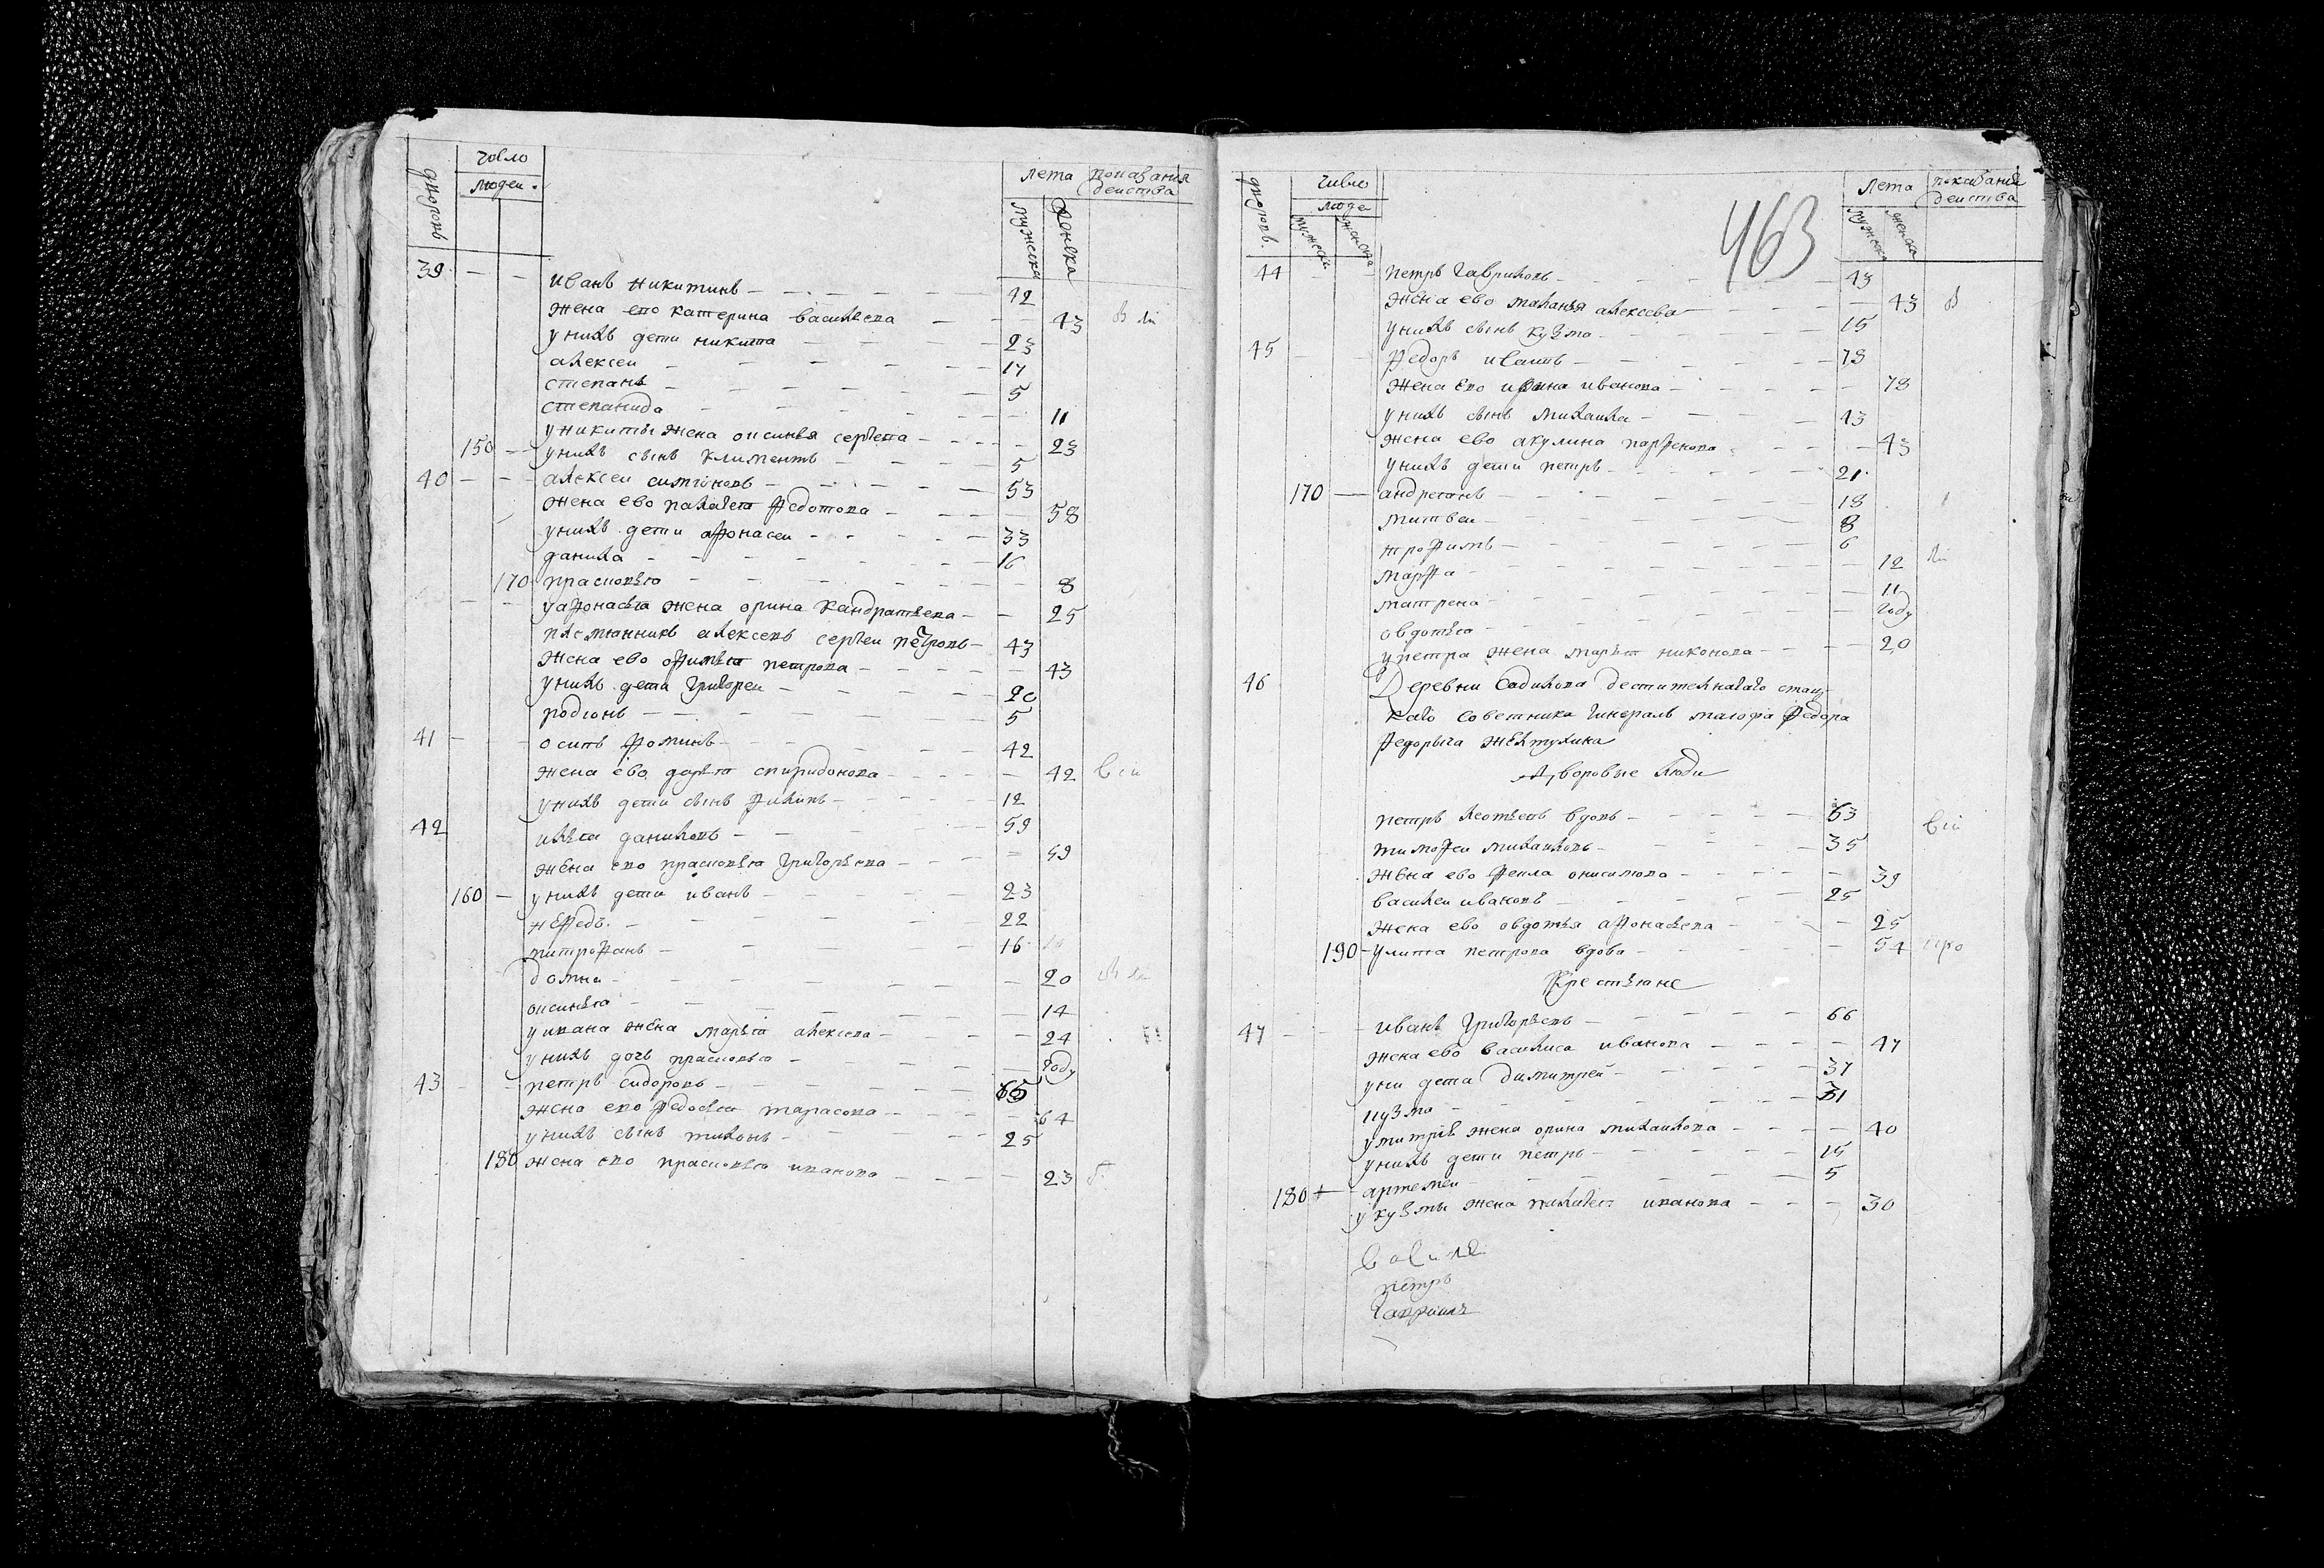 дворовъ
число
людеи
лета
показания
деиства
мужска
женска
39 иванъ никитинъ 42
жена ево катерина василева 43
у нихъ дети никита 23
алексеи 17
степанъ 5
степанида 11
у никиты жена оксинья сергева 23
150 у нихъ сынъ климентъ 5
40 алексеи симионовъ 53
жена ево палагея федотова 58
у нихъ дети афонасеи 33
данила 16
170 прасковья 8
у афонасья жена орина кандратьева 25
племянникъ алексевъ сергеи петровъ 43
жена ево офимья петрова 43
у нихъ дети григореи 20
родионъ 5
41 осипъ фоминъ 42
жена ево дарья спиридонова 42
у нихъ дети сынъ филипъ 12
42 илья даниловъ 59
жена ево прасковья григорьева 59
160 у нихъ дети иванъ 23
нефедъ 22
митрофанъ 16
домна 20
оксинья 14
у ивана жена марья алексева 24
у нихъ дочь прасковья году
43 петръ сидоровъ 65
жена ево федосья тарасова 64
у нихъ сынъ тихонъ 25
180 жена ево прасковья иванова 23
дворовъ
число
люде
мужска
женска
лета
показание
деиства
мужска
женска
463
44 петръ гавриловъ 43
жена ево маланья алексева 43
у нихъ сынъ кузма 15
45 федоръ иванъ 78
жена ево ирина иванова 78
у нихъ сынъ михаила 43
жена ево акулина парфенова 43
у нихъ дети петръ 21
170 андреянъ 18
матвеи 8
трофимъ 6
марфа 12
матрена 11
овдотья году
у петра жена марья никонова 20
46 Деревни Садилова деститеннагаго стац
каго советника генералъ маиора Федора
Федорыча Желтухина
Дворовые люди
петръ леотьевъ вдовъ 63
тимофеи михаиловъ 35
жена ево фекла онисимова 39
василеи ивановъ 25
жена ево овдотья афонасева 25
190 улита петрова вдова 54
Крестьяне
47 иванъ григорьевъ 66
жена ево василиса иванова 47
у ни дети димитреи 37
кузма 31
у митрия жена орина михаилова 40
у нихъ дети петръ 15
180 артемеи 5
у кузмы жена палагея иванова 30
петръ
гавриилъ